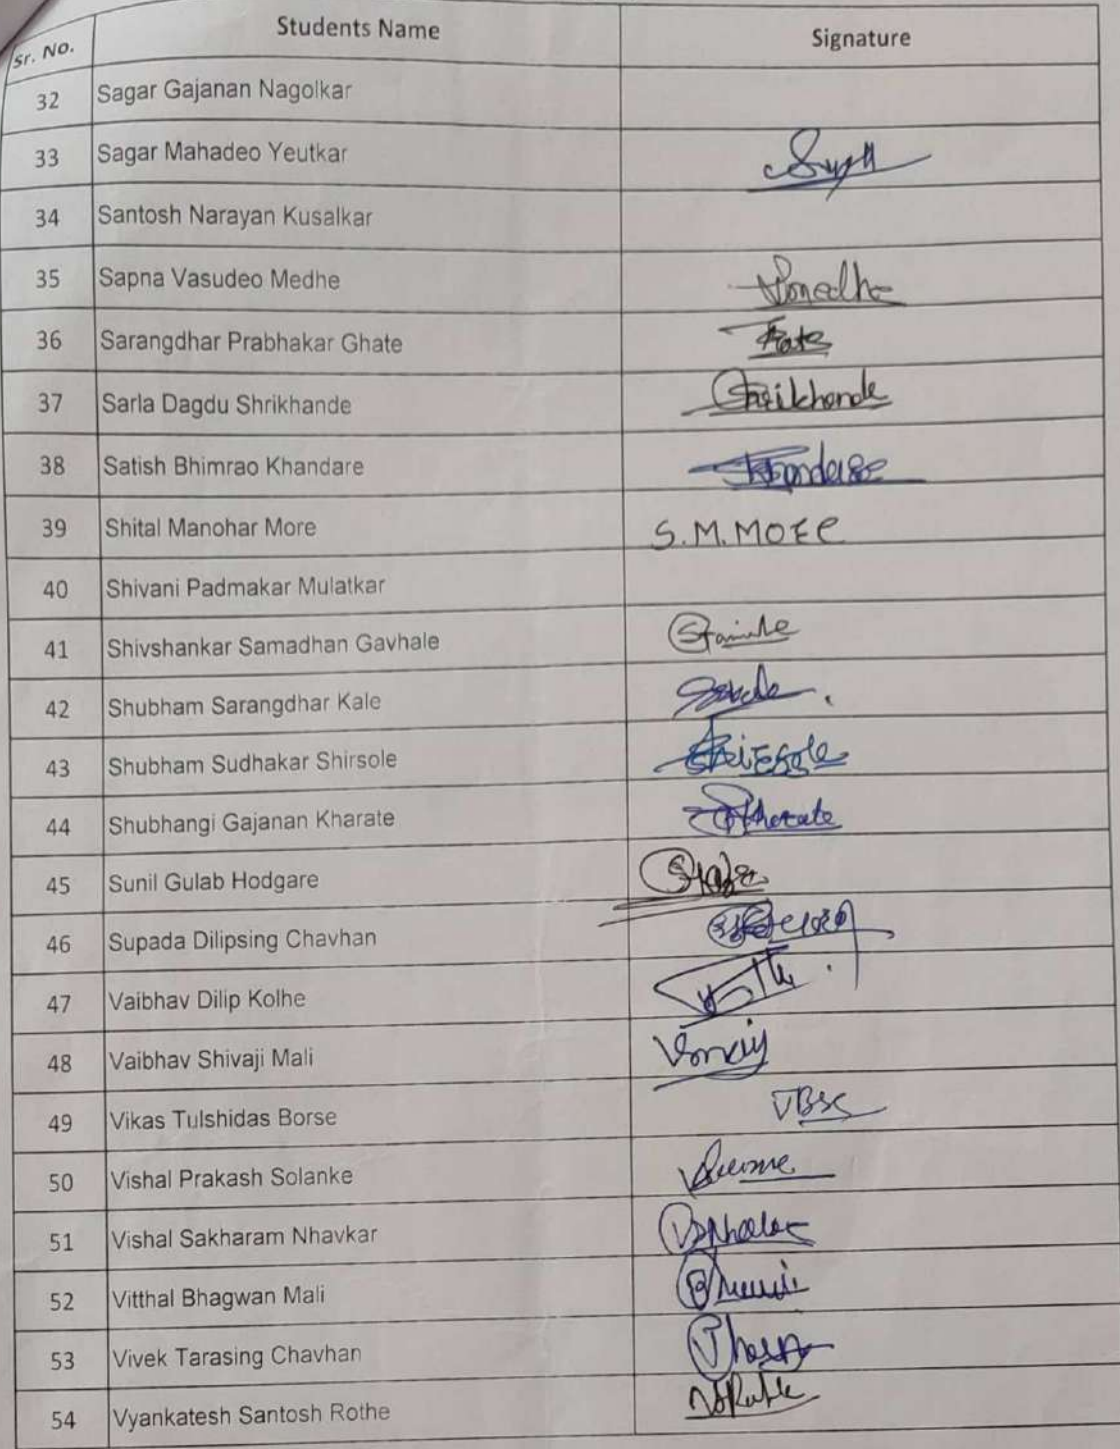 Sr. No. Students Name Signature
32 Sagar Gajanan Nagolkar
33 Sagar Mahadeo Yeutkar
34 Santosh Narayan Kusalkar
35 Sapna Vasudeo Medhe
36 Sarangdhar Prabhakar Ghate
37 Sarla Dagdu Shrikhande Shrikhande
38 Satish Bhimrao Khandare
39 Shital Manohar More S.M.MORE
40 Shivani Padmakar Mulatkar
41 Shivshankar Samadhan Gavhale
42 Shubham Sarangdhar Kale
43 Shubham Sudhakar Shirsole
44 Shubhangi Gajanan Kharate
45 Sunil Gulab Hodgare
46 Supada Dilipsing Chavhan
47 Vaibhav Dilip Kolhe
48 Vaibhav Shivaji Mali
49 Vikas Tulshidas Borse
50 Vishal Prakash Solanke
51 Vishal Sakharam Nhavkar
52 Vitthal Bhagwan Mali
53 Vivek Tarasing Chavhan
54 Vyankatesh Santosh Rothe